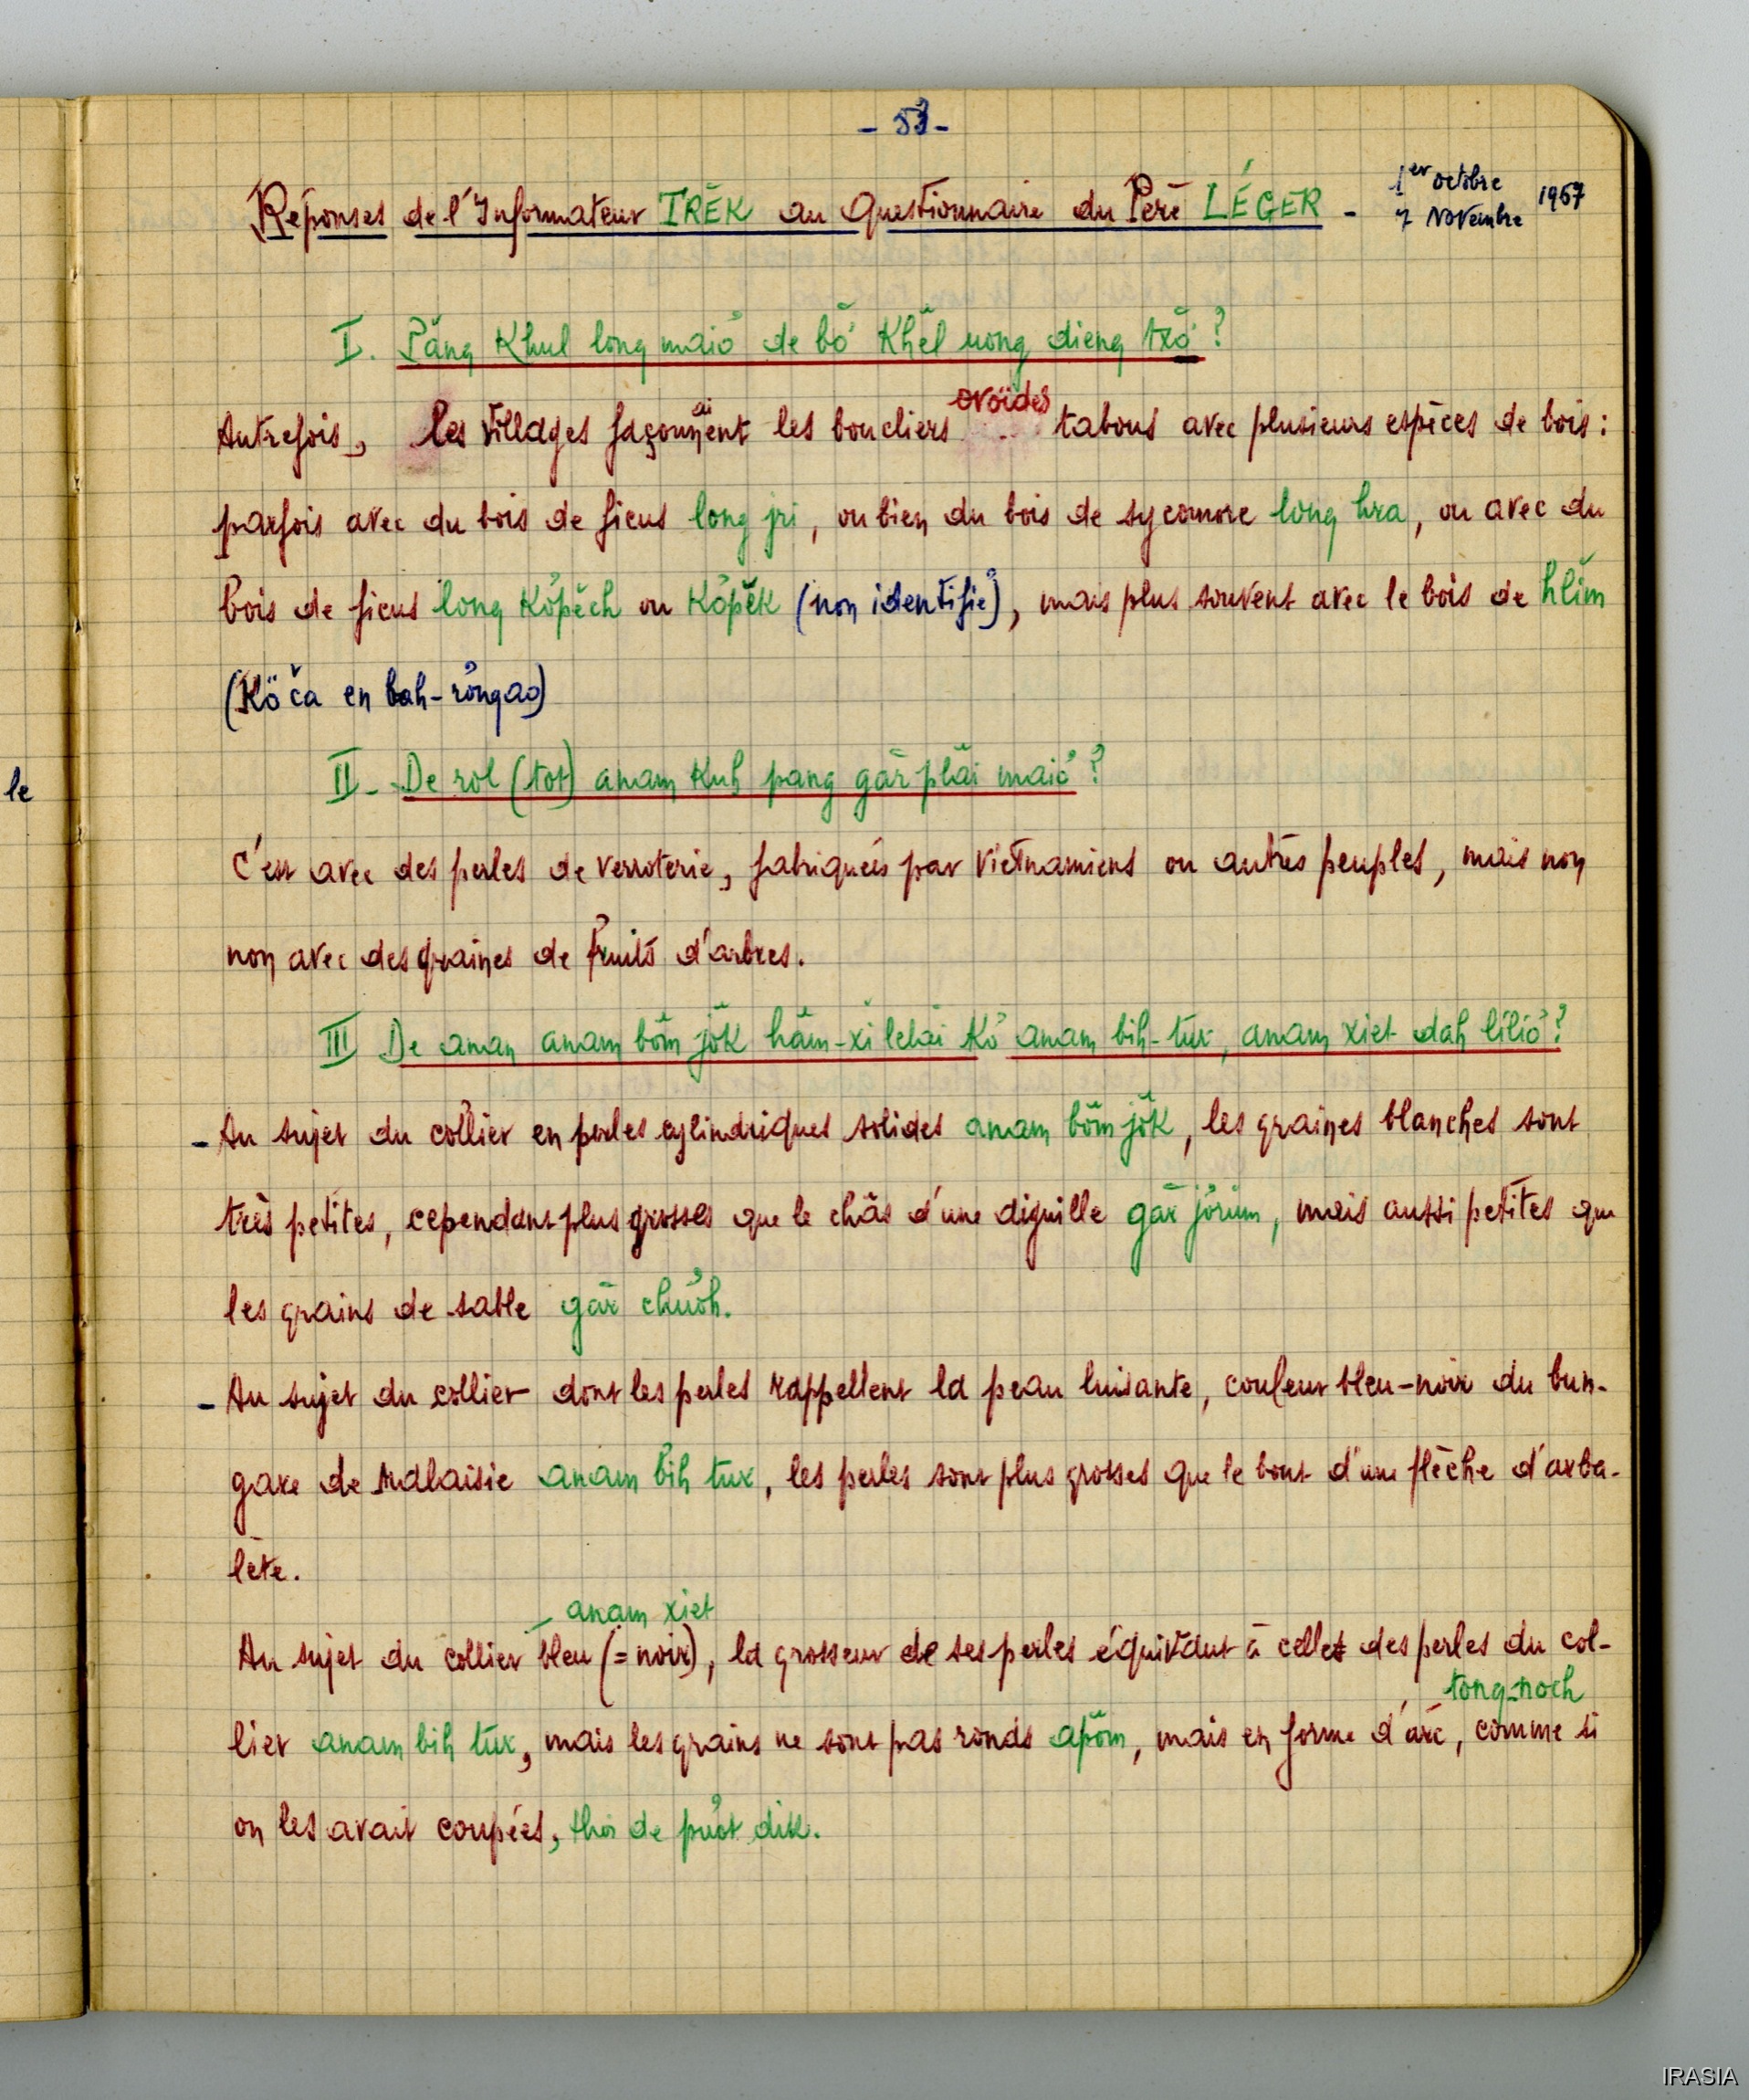 - 53 -
Réponses de l'Informateur TRĔK au Questionnaire du Père LÉGER - 1er octobre 7 Novembre 1967
I. Păng Khul long maiơ de bơ̆ Khĕl uong dieng trơ̆ ?
ovoïdes
Autrefois, les villages façonnaient les boucliers tabous avec plusieurs espèces de bois :
parfois avec du bois de ficus long jri, ou bien du bois de sycomore long hra, ou avec du
bois de ficus long Kơpĕch ou Kơpĕk (non identifié), mais plus souvent avec le bois de hlĭm
(Köča en bah-rơngao)
II - De rol (tot) anam Kuh pang găr plăi maiơ ?
C'est avec des perles de verroterie, fabriquées par Vietnamiens ou autres peuples, mais non
non avec des graines de fruits d'arbres.
III De anan anam bŏm jŏk hăm-xĭ lelăi Kơ anam bih-tur, anam xiet dah lĭliơ ?
- Au sujet du collier en perles cylindriques solides anam bŏm jŏk, les graines blanches sont
très petites, cependant plus grosses que le châs d'une aiguille găr jơrŭm, mais aussi petites que
les grains de sable găr chuơ̆h.
- Au sujet du collier dont les perles rappellent la peau luisante, couleur bleu-noir du bun-
gare de Malaisie anam bih tur, les perles sont plus grosses que le bout d'une flèche d'arba-
lète.
anam xiet
Au sujet du collier bleu (= noir), la grosseur de ses perles équivaut à celles des perles du col-
tong-noch
lier anam bih tur, mais les grains ne sont pas ronds apŏm, mais en forme d'arc, comme si
on les avait coupées, thoi de puơt dik.
le
IRASIA